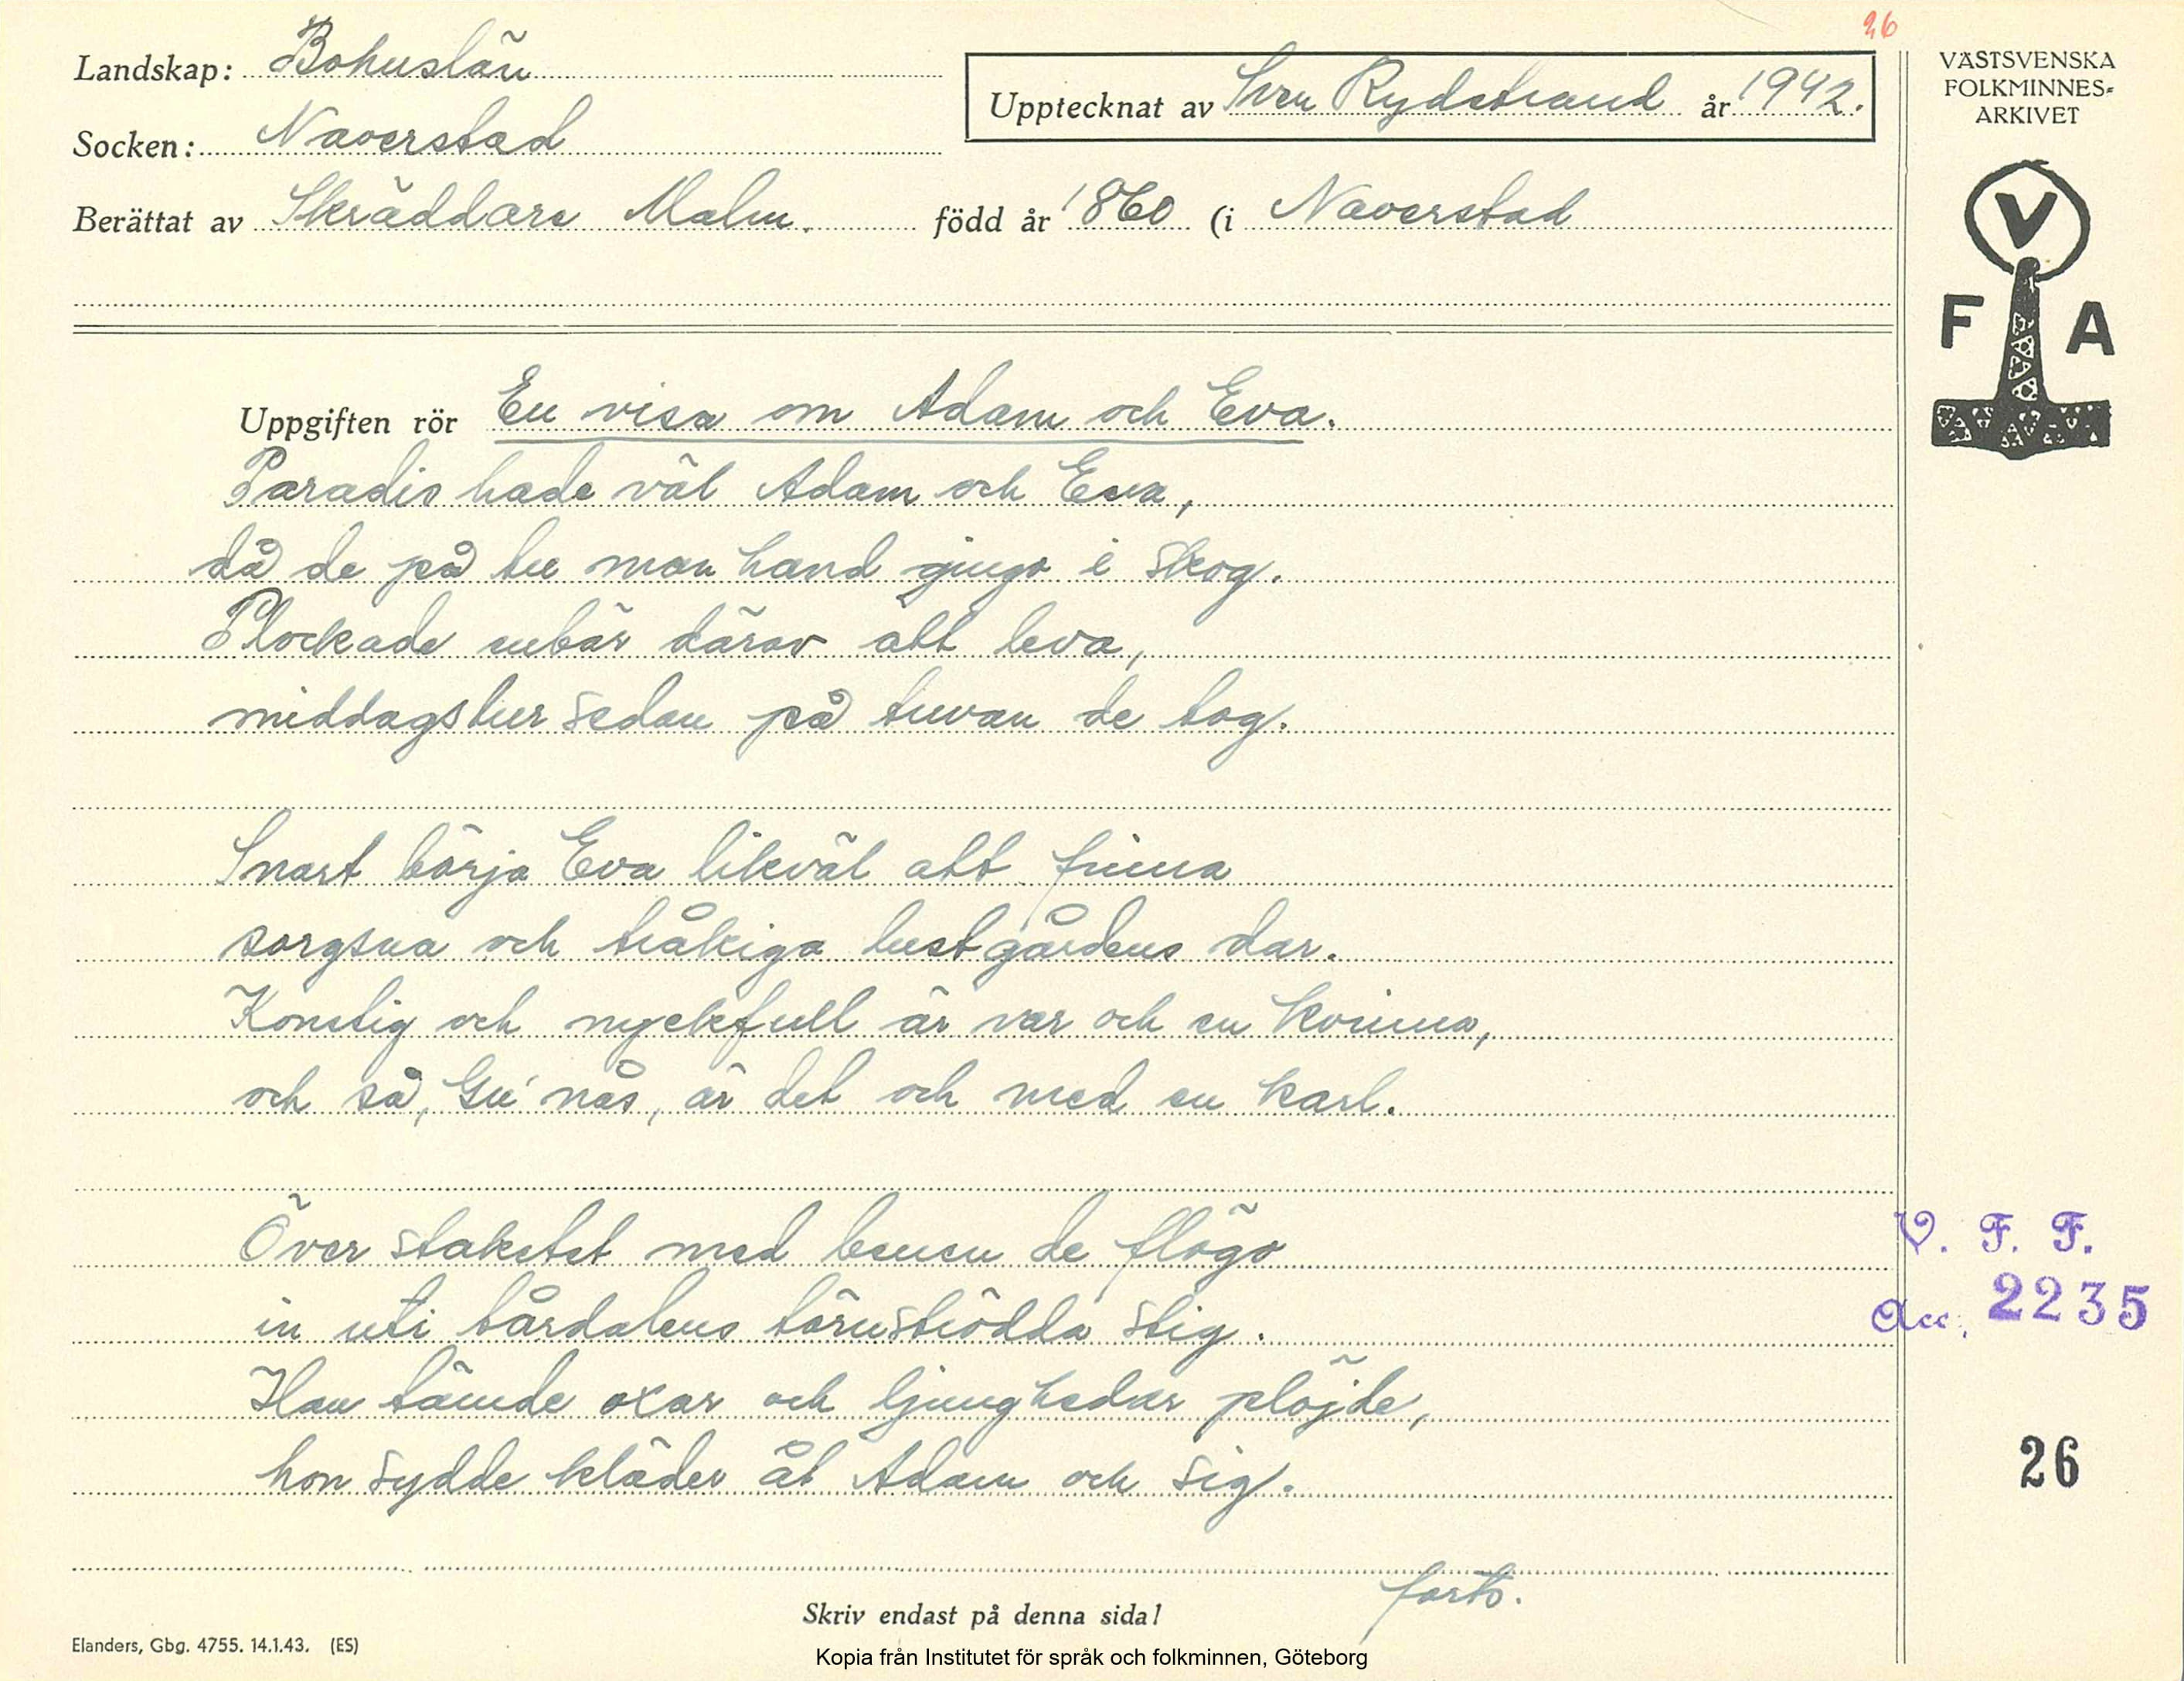 26
Landskap: Bohuslän
Upptecknat av Sven Rydstrand år 1942.
Socken: Naverstad
Berättat av Skräddare Malm. född år 1860 (i Naverstad
VÄSTSVENSKA
FOLKMINNES=
ARKIVET
V
F A
Uppgiften rör En visa om Adam och Eva.
Paradis hade väl Adam och Eva,
då de på tu man hand gingo i skog.
Plockade enbär därav att leva,
middagslur sedan på tuvan de tog.
Snart börja Eva likväl att finna
sorgsna och tråkiga lustgårdens dar.
Konstig och nyckfull är var och en kvinna,
och så, Gu' nås, är det och med en karl.
Över staketet med benen de flögo
in uti tårdalens törnströdda stig.
Han tämde oxar och ljunghedar plöjde,
hon sydde kläder åt Adam och sig.
V. F. F.
Acc. 2235
26
forts.
Skriv endast på denna sida!
Elanders, Gbg. 4755. 14.1.43. (ES)
Kopia från Institutet för språk och folkminnen, Göteborg